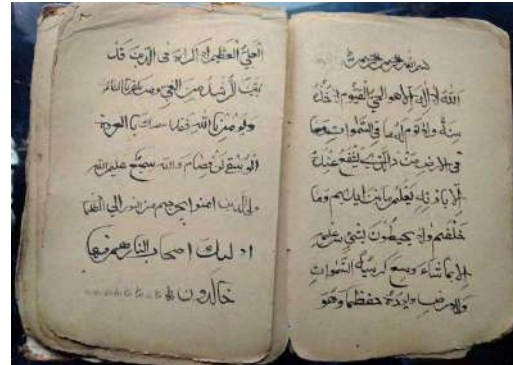 بسم الله الرحمن الرحيم
الله لا إله إلا هو الحي القيوم لا تأخذه
سنة ولا نوم له ما في السموات وما
في الارض من ذا الذي يشفع عنده
إلا باذنه يعلم ما بين ايديهم وما
خلفهم ولا يحيطون بشيء من علمه
إلا بما شاء وسع كرسيه السموات
والارض ولا يؤده حفظهما وهو
العلي العظيم لا اكراه في الدين قد
تبين الرشد من الغي ومن يكفر
ويؤمن بالله فقد بالعروة
الوثقى لا انفصام والله سميع عليم الله
ولي الذين امنوا يخرجهم من النور الى الظلما
اولئك اصحاب النار هم فيها
خالدون